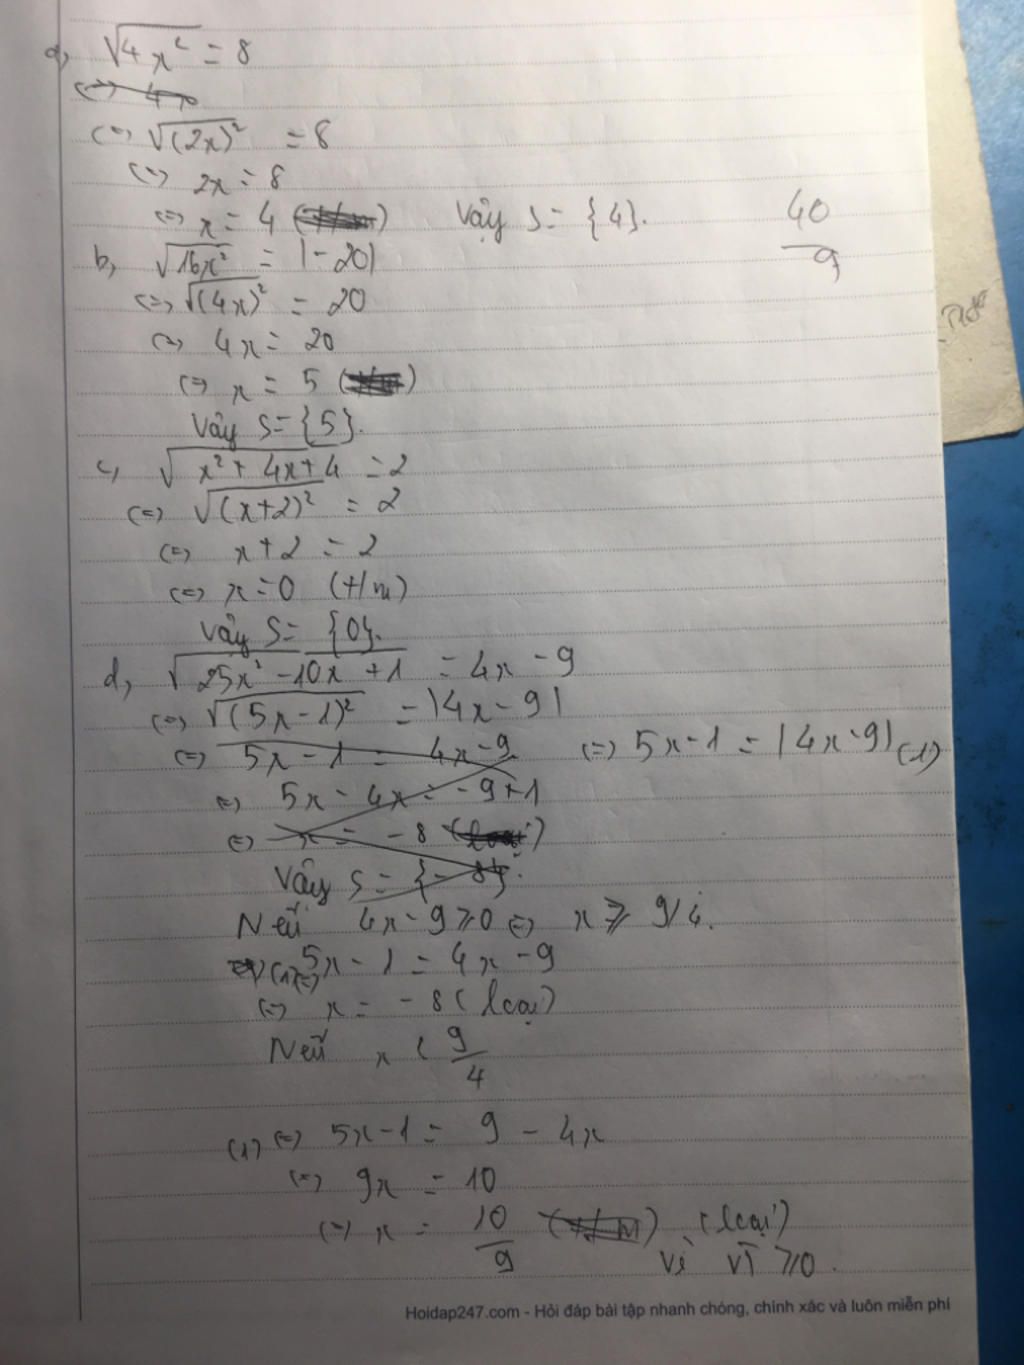 a, √4x² = 8
(=) 4x
(=) √(2x)² = 8
(=) 2x = 8
(=) x = 4 (t/m) Vậy S = {4}.
40/9
b, √16x² = |-20|
(=) √(4x)² = 20
(=) 4x = 20
(=) x = 5 (t/m)
Vậy S = {5}.
c, √x² + 4x + 4 = 2
(=) √(x+2)² = 2
(=) x + 2 = 2
(=) x = 0 (t/m)
Vậy S = {0}.
d, √25x² - 10x + 1 = 4x - 9
(=) √(5x - 1)² = |4x - 9|
(=) 5x - 1 = 4x - 9 (=) 5x - 1 = |4x - 9| (1)
(=) 5x - 4x = -9 + 1
(=) x = -8 (loại)
Vậy S = {-8}.
Nếu 4x - 9 ≥ 0 (=) x ≥ 9/4.
(1) (=) 5x - 1 = 4x - 9
(=) x = -8 (loại)
Nếu x < 9/4
(1) (=) 5x - 1 = 9 - 4x
(=) 9x = 10
(=) x = 10/9 (t/m) (loại)
Vì VT ≥ 0.
Hoidap247.com - Hỏi đáp bài tập nhanh chóng, chính xác và luôn miễn phí